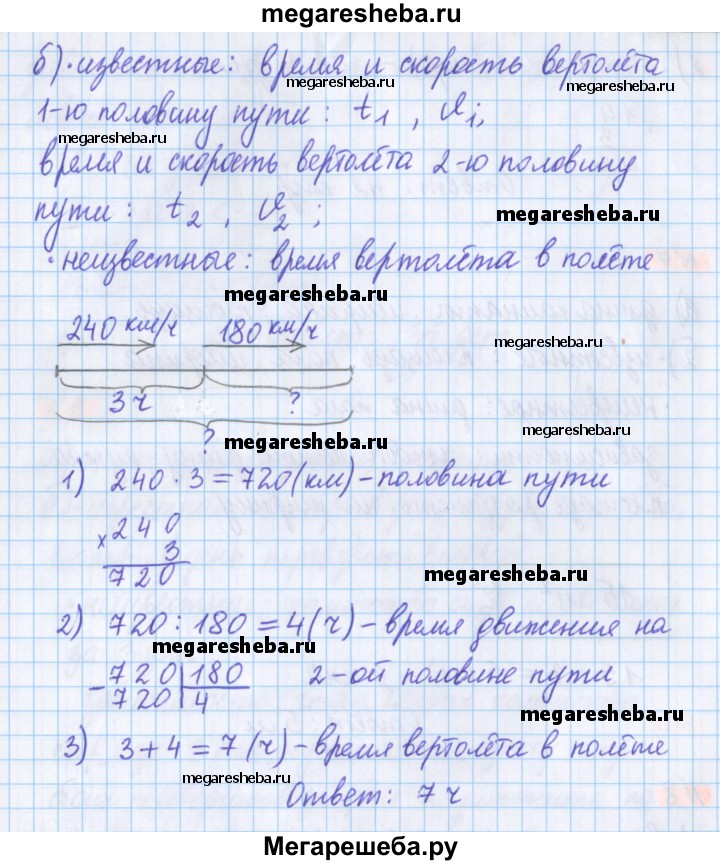 megaresheba.ru
б) · известные: время и скорость вертолёта
megaresheba.ru megaresheba.ru
1-ю половину пути: t1, v1;
megaresheba.ru
время и скорость вертолёта 2-ю половину
пути: t2, v2;
megaresheba.ru
· неизвестные: время вертолёта в полёте
megaresheba.ru
240 км/ч 180 км/ч
megaresheba.ru
3 ч ?
?
megaresheba.ru megaresheba.ru
1) 240 · 3 = 720 (км) – половина пути
× 240
3
720
megaresheba.ru
2) 720 : 180 = 4 (ч) – время движения на
megaresheba.ru
2-ой половине пути
– 720 | 180
720 | 4
megaresheba.ru
3) 3 + 4 = 7 (ч) – время вертолёта в полёте
megaresheba.ru megaresheba.ru
Ответ: 7 ч
Мегарешеба.ру